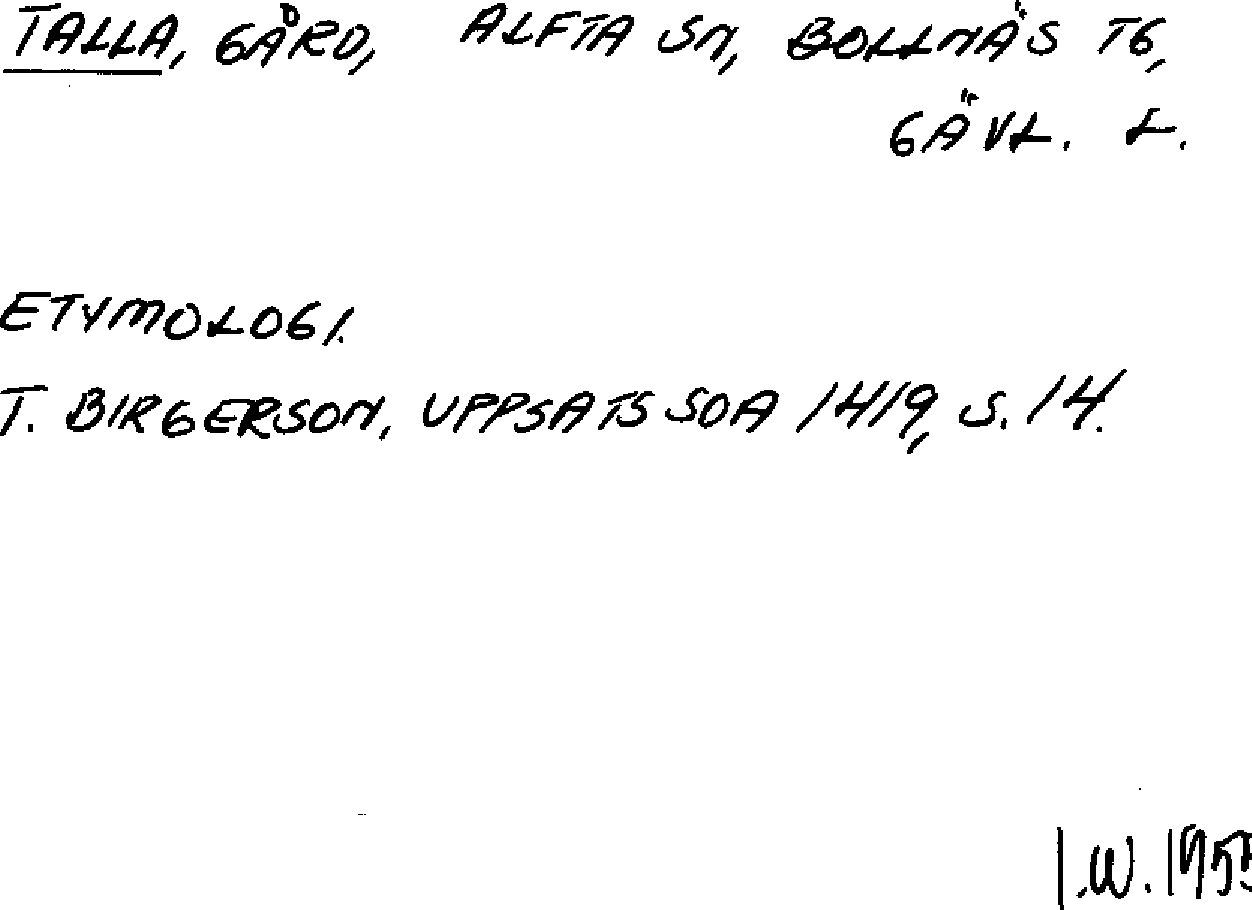 TALLA, GÅRD, ALFTA SN, BOLLNÄS TG,
GÄVL. L.
ETYMOLOGI.
T. BIRGERSON, UPPSATS SOA 1419, S. 14.
I.W.